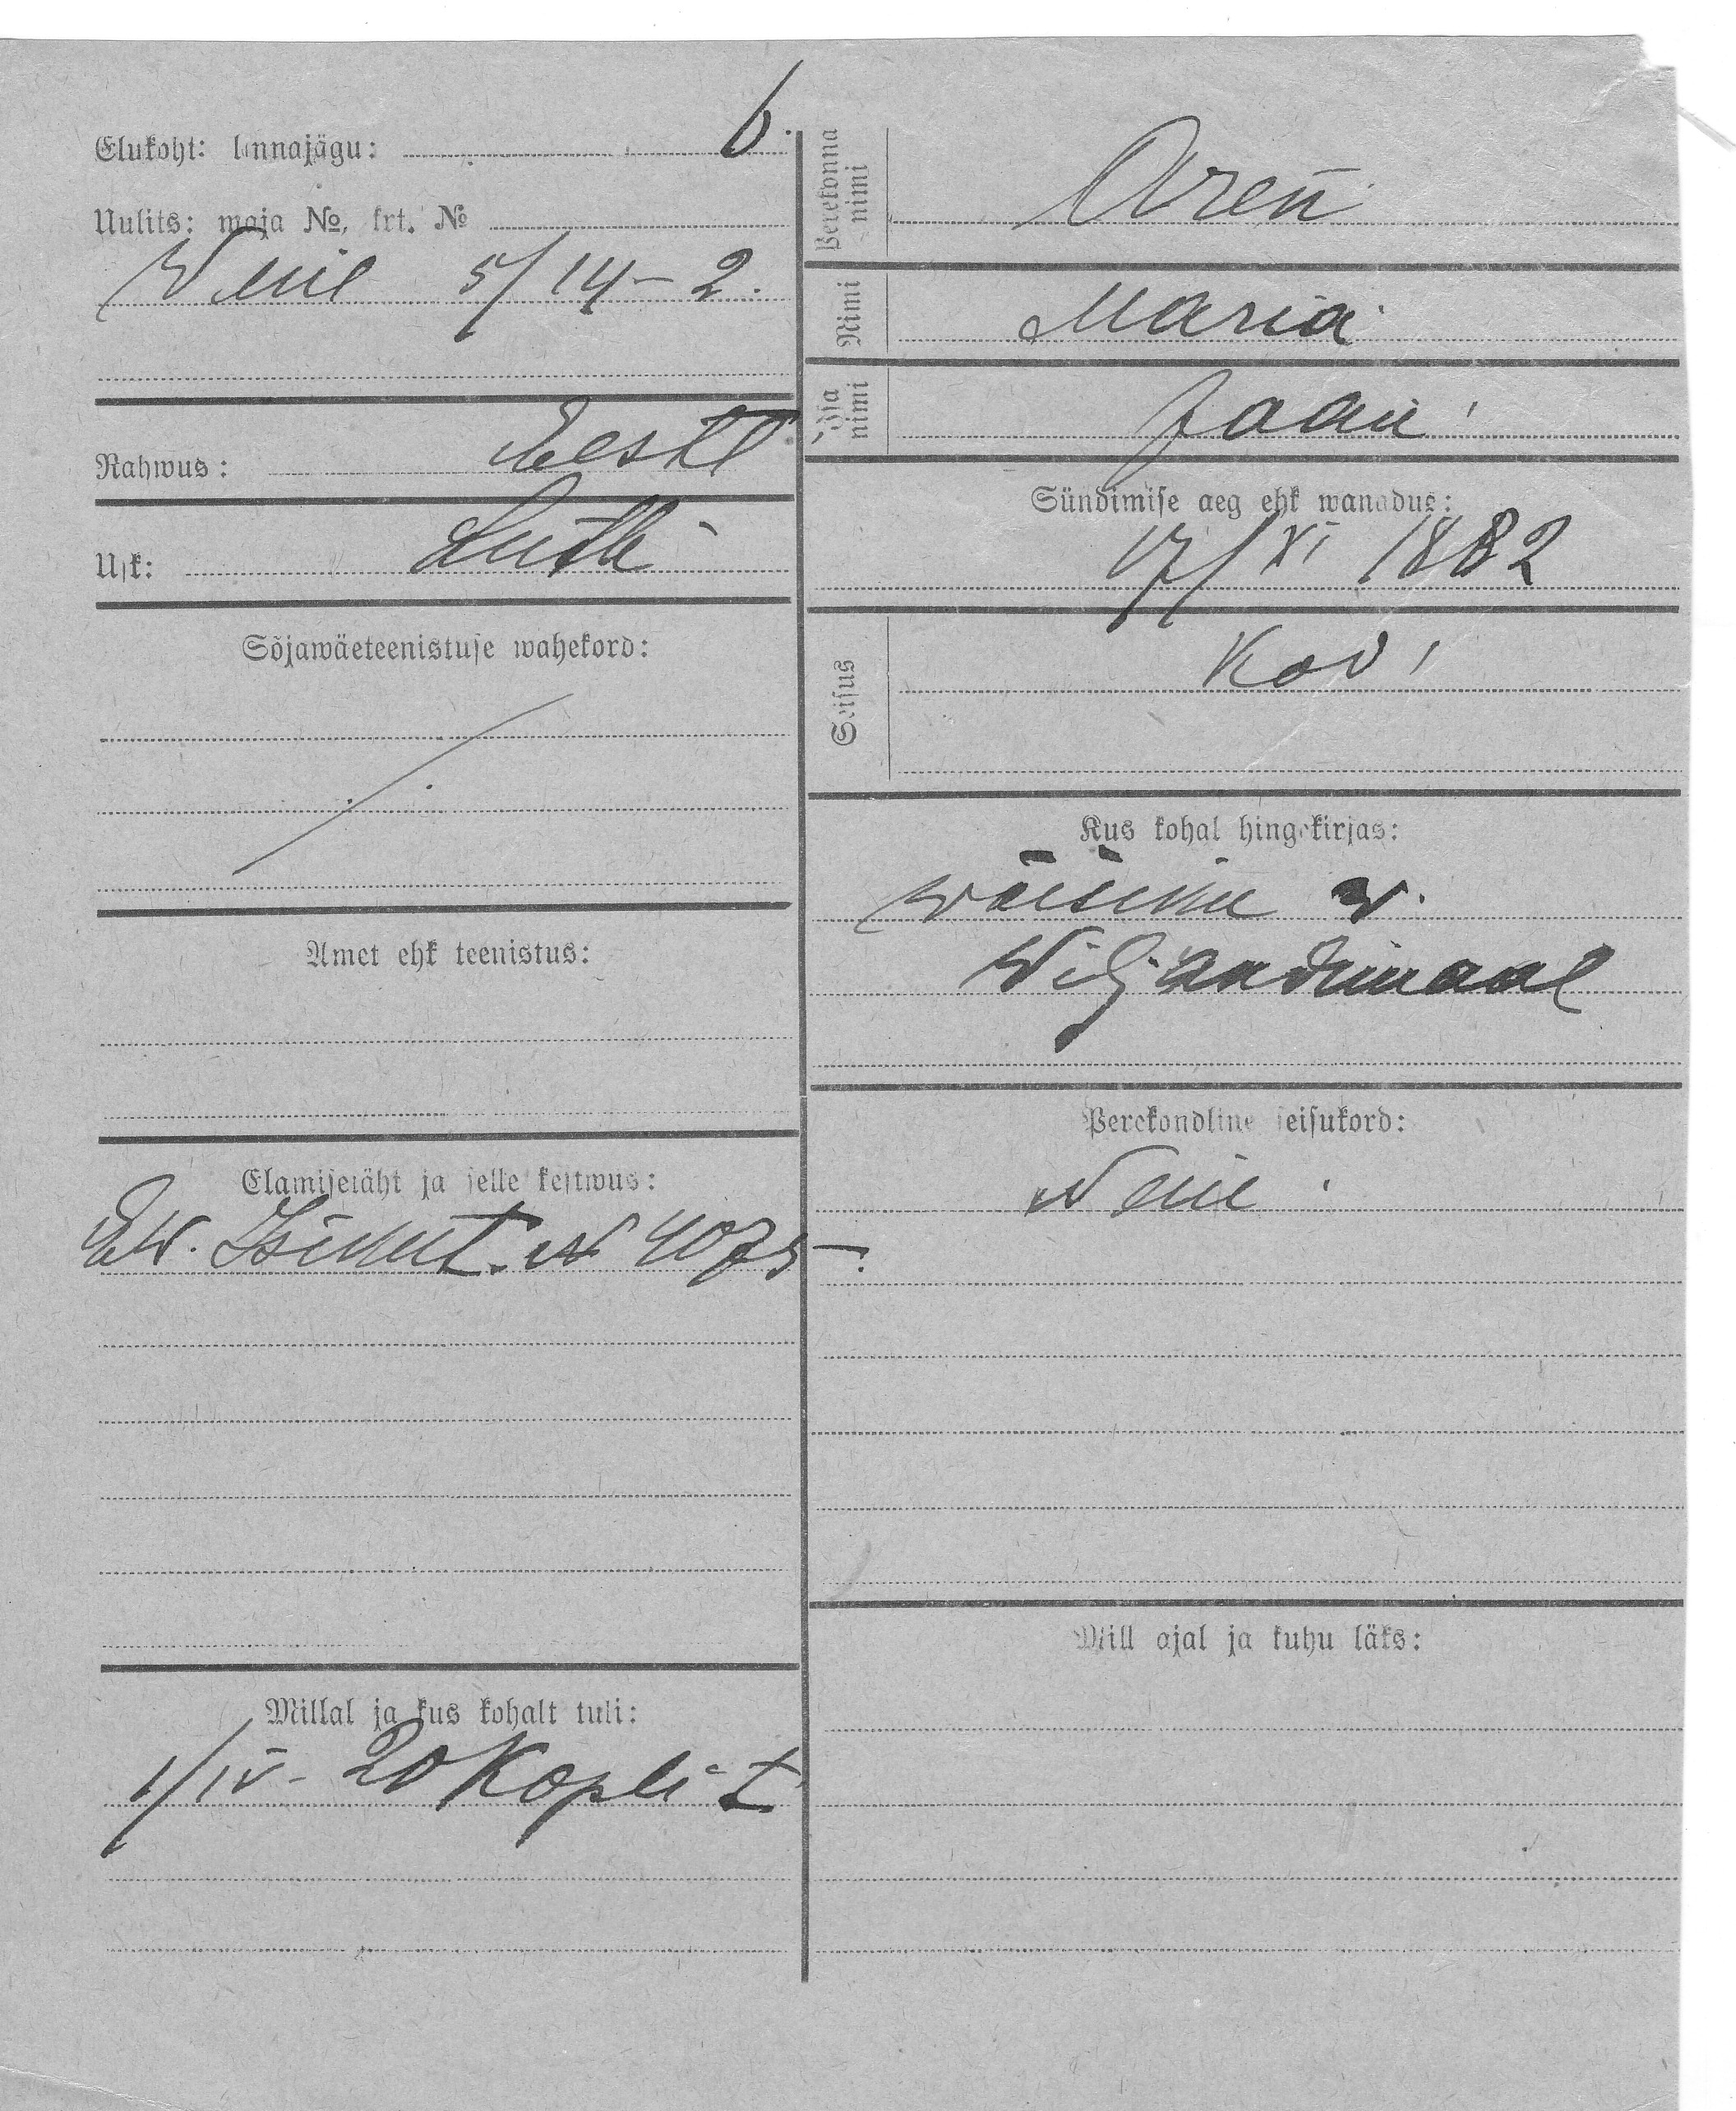 Elukoht: linnajagu: 6.
Uulits: maja №, krt. №
Wene 5/14-2.
Rahwus: Eestl
Usk: Luth
Sõjawäeteenistuse wahekord:
Amet ehk teenistus:
Elamisetäht ja selle kestwus:
N 4075
Millal ja kus kohalt tuli:
1/IV-20 Koplit
Perekonna nimi
Oren
Nimi
Maria
Isa nimi
Jaan
Sündimise aeg ehk wanadus:
17/XI 1882
Seisus
Kod
Kus kohal hingekirjas:
Wõisiku w.
Wiljandimaal
Perekondline seisukord:
Mill ajal ja kuhu läks: